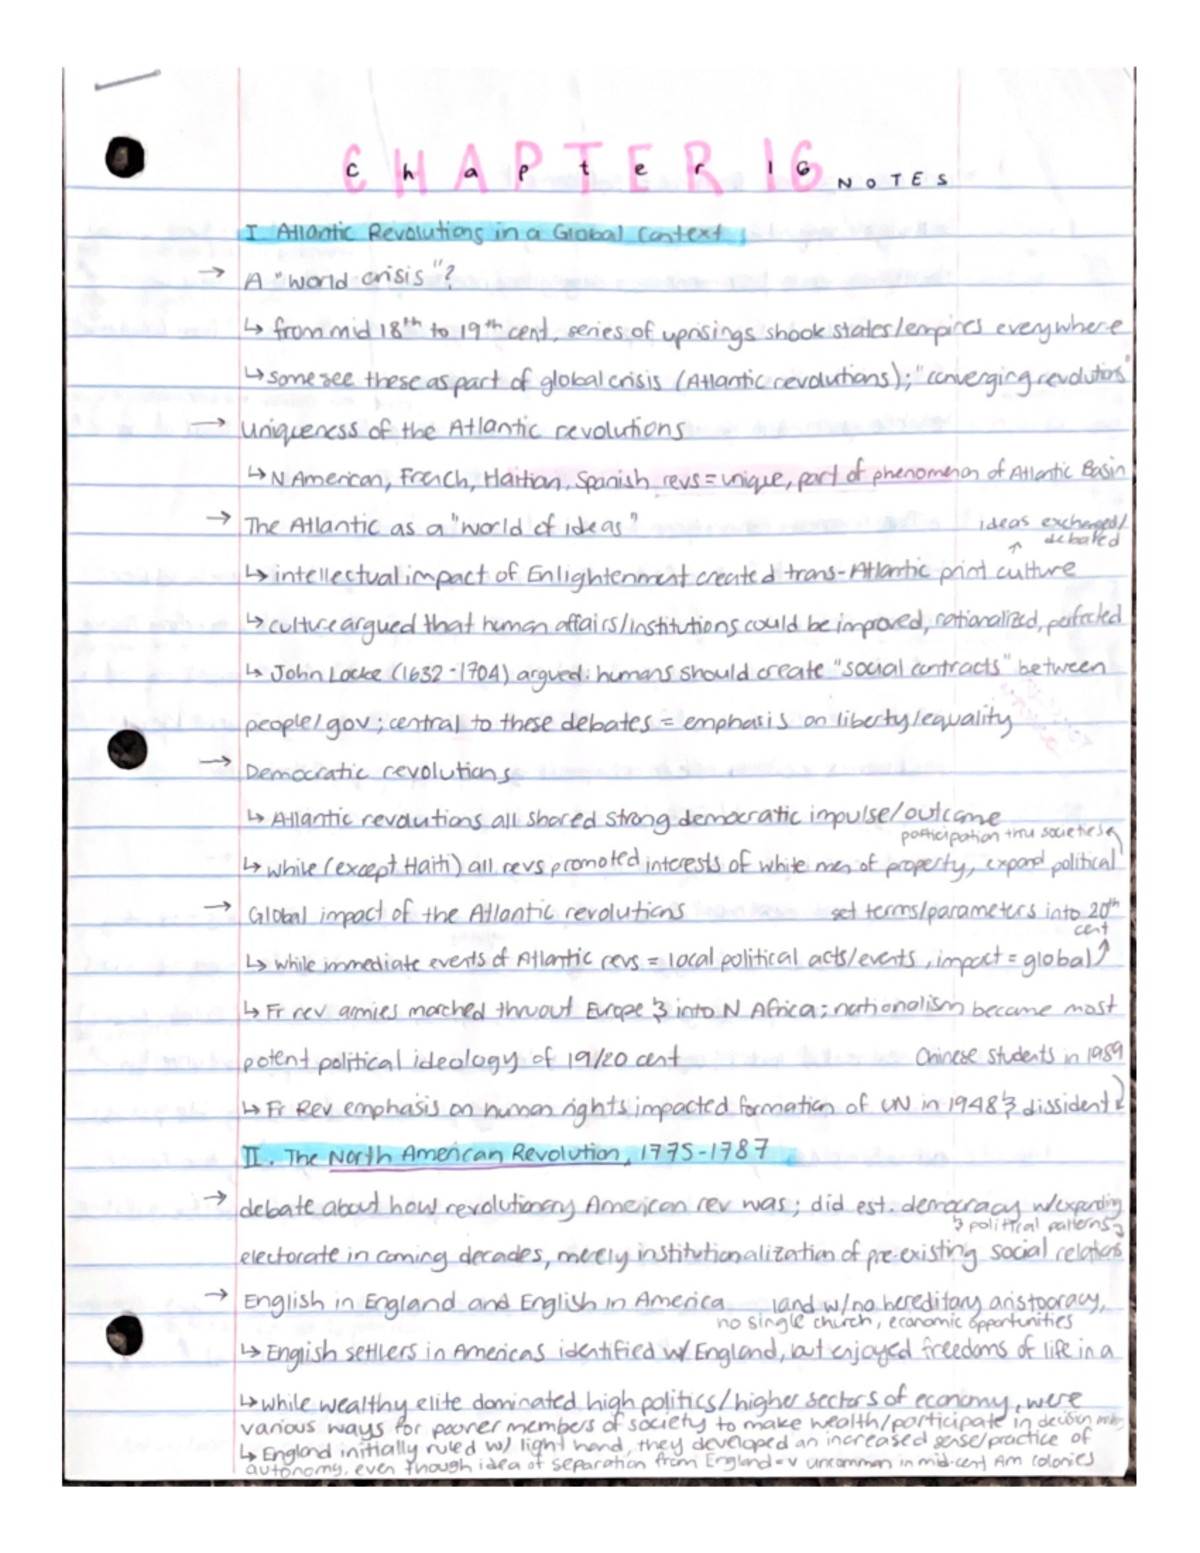 CHAPTER 16
Chapter 16 NOTES
I. Atlantic Revolutions in a Global Context
→ A "world crisis"?
↳ from mid 18th to 19th cent, series of uprisings shook states/empires everywhere
↳ some see these as part of global crisis (Atlantic revolutions); "converging revolutions"
→ Uniqueness of the Atlantic revolutions
↳ N American, French, Haitian, Spanish revs = unique, part of phenomenon of Atlantic Basin
→ The Atlantic as a "world of ideas"
ideas exchanged/
debated
↑
↳ intellectual impact of Enlightenment created trans-Atlantic print culture
↳ culture argued that human affairs/institutions could be improved, rationalized, perfected
↳ John Locke (1632-1704) argued: humans should create "social contracts" between
people/gov; central to these debates = emphasis on liberty/equality
→ Democratic revolutions
↳ Atlantic revolutions all shared strong democratic impulse/outcome
participation thru societies
↳ while (except Haiti) all revs promoted interests of white men of property, expand political
→ Global impact of the Atlantic revolutions
set terms/parameters into 20th
cent
↳ while immediate events of Atlantic revs = local political acts/events, impact = global
↳ Fr rev armies marched thruout Europe & into N Africa; nationalism became most
potent political ideology of 19/20 cent
Chinese students in 1989
↳ Fr Rev emphasis on human rights impacted formation of UN in 1948 & dissident
II. The North American Revolution, 1775-1787
→ debate about how revolutionary American rev was; did est. democracy w/expanding
& political patterns
electorate in coming decades, merely institutionalization of pre-existing social relations
→ English in England and English in America
land w/no hereditary aristocracy,
no single church, economic opportunities
↳ English settlers in Americas identified w/ England, but enjoyed freedoms of life in a
↳ while wealthy elite dominated high politics/higher sectors of economy, were
various ways for poorer members of society to make wealth/participate in decision
↳ England initially ruled w/ light hand, they developed an increased sense/practice of
autonomy, even though idea of separation from England = v uncommon in mid-cent Am colonies